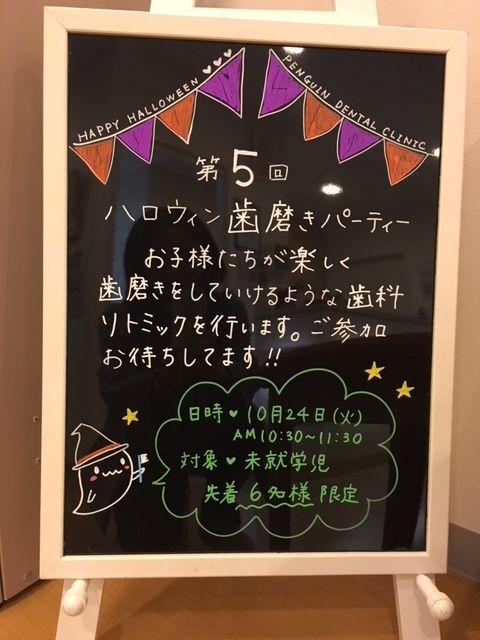 HAPPY HALLOWEEN ♡♡♡
PENGUIN DENTAL CLINIC
第5回
ハロウィン歯磨きパーティー
お子様たちが楽しく
歯磨きをしていけるような歯科
リトミックを行います。ご参加
お待ちしてます!!
日時♥10月24日(火)
AM10:30~11:30
対象♥未就学児
先着6名様限定